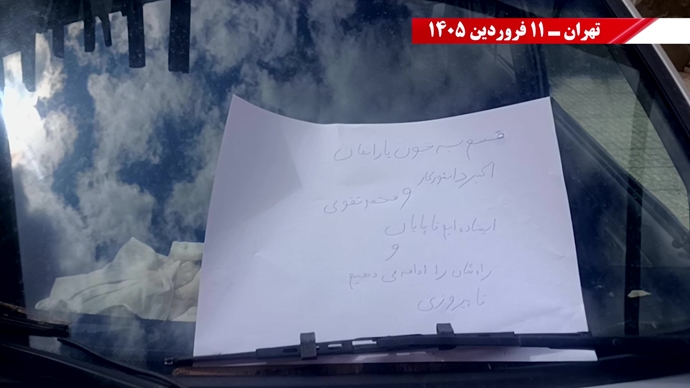 تهران ـ ۱۱ فروردین ۱۴۰۵
قسم به خون یارانمان
اکبر دانشورکار
و محمد تقوی
ایستاده ایم تا پایان
و
راهتان را ادامه می دهیم
تا پیروزی